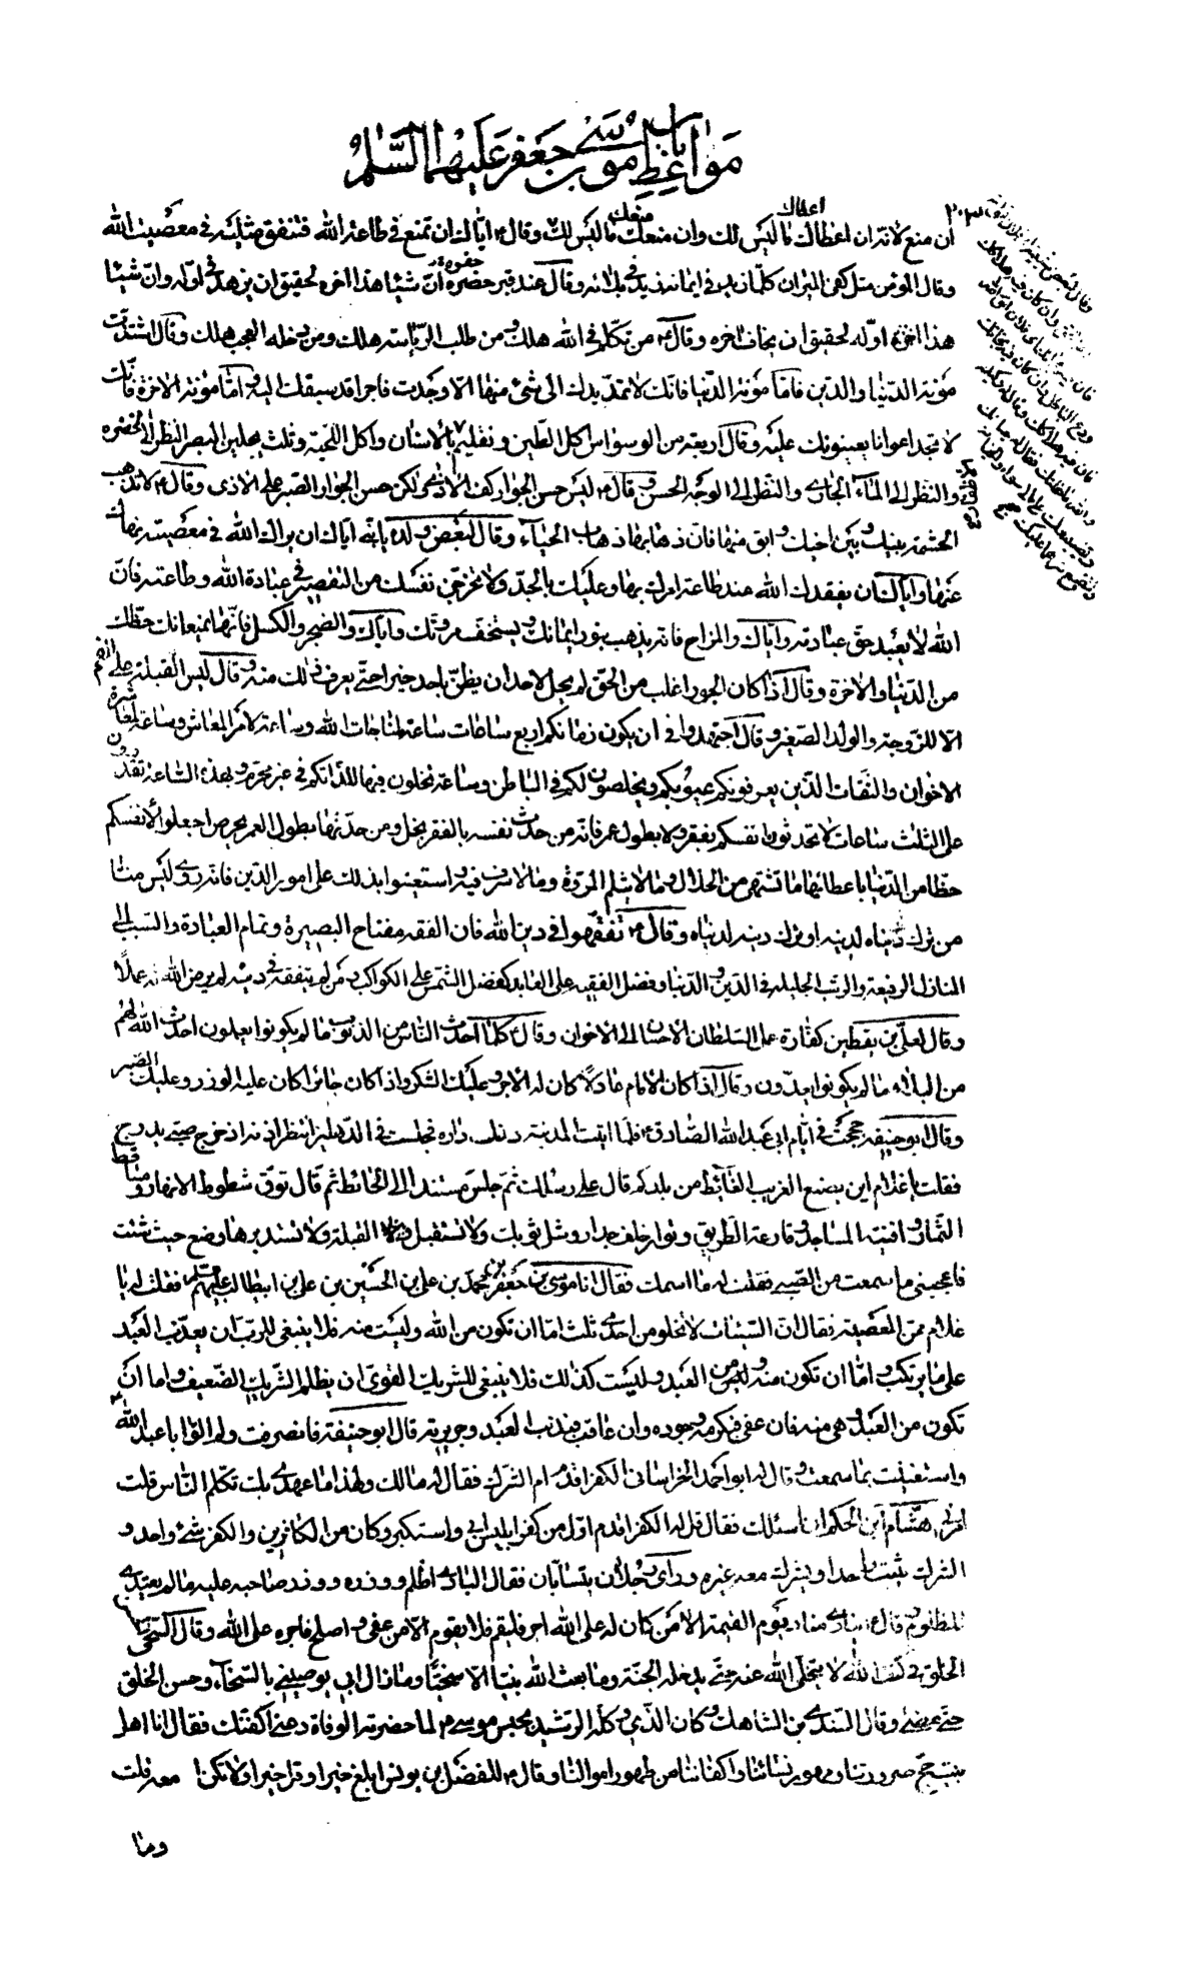 باب
مواعظ موسى بن جعفر عليهما السلام
ان منع لانه ان اعطاك ما ليس لك وان منعك ما ليس لك وقال ع اياك ان تمنع في طاعة الله فتنفق مثليه في معصية الله
وقال المؤمن مثل كفي الميزان كلما زيد في ايمانه زيد في بلائه وقال عند قبر حضره ان شيئا هذا اخره لحقيق ان يزهد في اوله وان شيئا
هذا اوله لحقيق ان يخاف اخره وقال ع من تكلم في الله هلك ومن طلب الرياسة هلك ومن دخله العجب هلك وقال اشتدت
مؤنة الدنيا والدين فاما مؤنة الدنيا فانك لا تمد يدك الى شئ منها الا وجدت فاجرا قد سبقك اليه واما مؤنة الاخرة فانك
لا تجد اعوانا يعينونك عليه وقال اربعة من الوسواس اكل الطين و بالاسنان واكل اللحية وثلث يجلين البصر النظر الى الخضرة
والنظر الى الماء الجاري والنظر الى الوجه الحسن وقال ع ليس حسن الجوار كف الاذى ولكن حسن الجوار الصبر على الاذى وقال ع لا تذهب
الحشمة بينك وبين اخيك وابق منها فان ذهابها ذهاب الحياء وقال لبعض ولده يا بني اياك ان يراك الله في معصية نهاك
عنها واياك ان يفقدك الله عند طاعة امرك بها وعليك بالجد ولا تخرجن نفسك من التقصير في عبادة الله وطاعته فان
الله لا يعبد حق عبادته واياك والمزاح فانه يذهب بنور ايمانك ويستخف مروتك واياك والضجر والكسل فانهما يمنعانك حظك
من الدنيا والاخرة وقال اذا كان الجور اغلب من الحق لم يحل لاحد ان يظن باحد خيرا حتى يعرف ذلك منه وقال ليس القبلة على الفم
الا للزوجة والولد الصغير وقال اجتهدوا في ان يكون زمانكم اربع ساعات ساعة لمناجات الله وساعة لامر المعاش وساعة لمعاشرة
الاخوان والثقات الذين يعرفونكم عيوبكم ويخلصون لكم في الباطن وساعة تخلون فيها للذاتكم في غير محرم وبهذه الساعة تقدرون
على الثلث ساعات لا تحدثوا انفسكم بفقر ولا بطول عمر فانه من حدث نفسه بالفقر بخل ومن حدثها بطول العمر يحرص اجعلوا لانفسكم
حظا من الدنيا باعطائها ما تشتهي من الحلال وما لا يثلم المروة وما لا سرف فيه واستعينوا بذلك على امور الدين فانه روي ليس منا
من ترك دنياه لدينه او ترك دينه لدنياه وقال ع تفقهوا في دين الله فان الفقه مفتاح البصيرة وتمام العبادة والسبب الى
المنازل الرفيعة والرتب الجليلة في الدين والدنيا وفضل الفقيه على العابد كفضل الشمس على الكواكب ومن لم يتفقه في دينه لم يرض الله له عملا
وقال لعلي بن يقطين كفارة عمل السلطان الاحسان الى الاخوان وقال ع كلما احدث الناس من الذنوب ما لم يكونوا يعملون احدث الله لهم
من البلاء ما لم يكونوا يعدون وقال اذا كان الامام عادلا كان له الاجر وعليك الشكر واذا كان جائرا كان عليه الوزر وعليك الصبر
وقال ابو حنيفة حججت في ايام ابي عبد الله الصادق ع فلما اتيت المدينة دخلت داره فجلست في الدهليز انتظر اذنه اذ خرج صبي يدرج
فقلت يا غلام اين يضع الغريب الغائط من بلدكم قال على رسلك ثم جلس مستندا الى الحائط ثم قال توق شطوط الانهار ومساقط
الثمار وافنية المساجد وقارعة الطريق وتوار خلف جدار وشل ثوبك ولا تستقبل القبلة ولا تستدبرها وضع حيث شئت
فاعجبني ما سمعت من الصبي فقلت له ما اسمك فقال انا موسى بن جعفر بن محمد بن علي بن الحسين بن علي بن ابيطالب عليهم فقلت له يا
غلام ممن المعصية فقال ان السيئات لا تخلو من احدى ثلث اما ان تكون من الله وليست منه فلا ينبغي للرب ان يعذب العبد
على ما يرتكب واما ان تكون منه ومن العبد وليست كذلك فلا ينبغي للشريك القوي ان يظلم الشريك الضعيف واما ان
تكون من العبد وهي منه فان عفى فبكرمه وجوده وان عاقب فبذنب العبد وجريرته قال ابو حنيفة فانصرفت ولم الق ابا عبد الله
واستغنيت بما سمعت وقال له ابو احمد الخراساني الكفر اقدم ام الشرك فقال له مالك ولهذا ما عهدي بك تكلم الناس قلت
امرني هشام ابن الحكم ان اسئلك فقال قل له الكفر اقدم اول من كفر ابليس ابى واستكبر وكان من الكافرين والكفر شئ واحد و
الشرك يثبت واحدا ويشرك معه غيره وراى رجلان يتسابان فقال البادي اظلم ووزره ووزر صاحبه عليه ما لم يعتد
المظلوم وقال ينادي مناد يوم القيمة الا من كان له على الله اجر فليقم فلا يقوم الا من عفى واصلح فاجره على الله وقال السخي
الخلق في كنف الله لا يتخلى الله عنه حتى يدخله الجنة وما بعث الله نبيا الا سخيا وما زال ابي يوصيني بالسخاء وحسن الخلق
حتى مضى وقال السندي بن الشاهك وكان الذي وكله الرشيد بحبس موسى ع لما حضرته الوفاة دعني اكفنك فقال انا اهل
بيت حج صرورتنا ومهور نسائنا واكفاننا من طهور اموالنا وقال ع للفضل بن يونس ابلغ خيرا وقل خيرا ولا تكن امعة قلت
وما